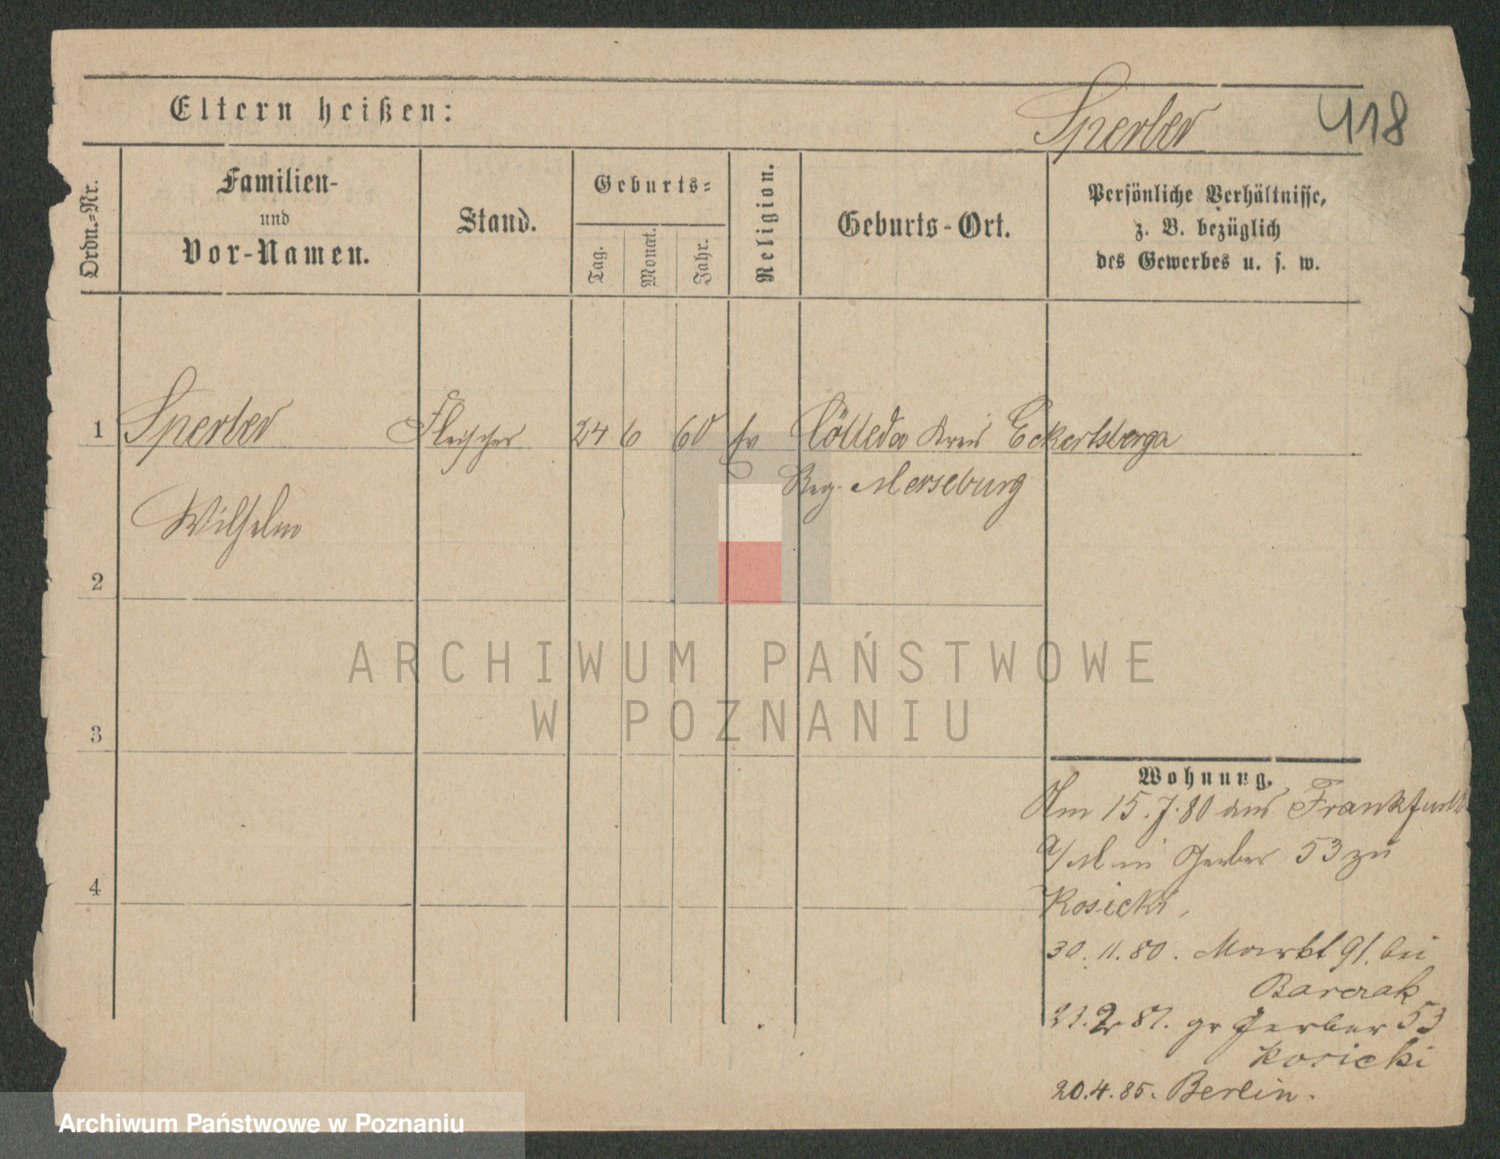 Eltern heißen:
Sperber
418
Ordn.-Nr.
Familien-
und
Vor-Namen.
Stand.
Geburts-
Tag.
Monat.
Jahr.
Religion.
Geburts-Ort.
Persönliche Verhältnisse,
z. B. bezüglich
des Gewerbes u. s. w.
1 Sperber Fleischer 24 6 60 ev Cölleda Kreis Eckartsberga
Reg. Merseburg
Wilhelm
2
3
4
ARCHIWUM PAŃSTWOWE
W POZNANIU
Wohnung.
Am 15.7.80 aus Frankfurt
a/M in Gerber 53 zu
Kosicki,
30.11.80. Markt 91. bei
Barczak
23.2 81. gr Gerber 53
Kosicki
20.4.85. Berlin.
Archiwum Państwowe w Poznaniu